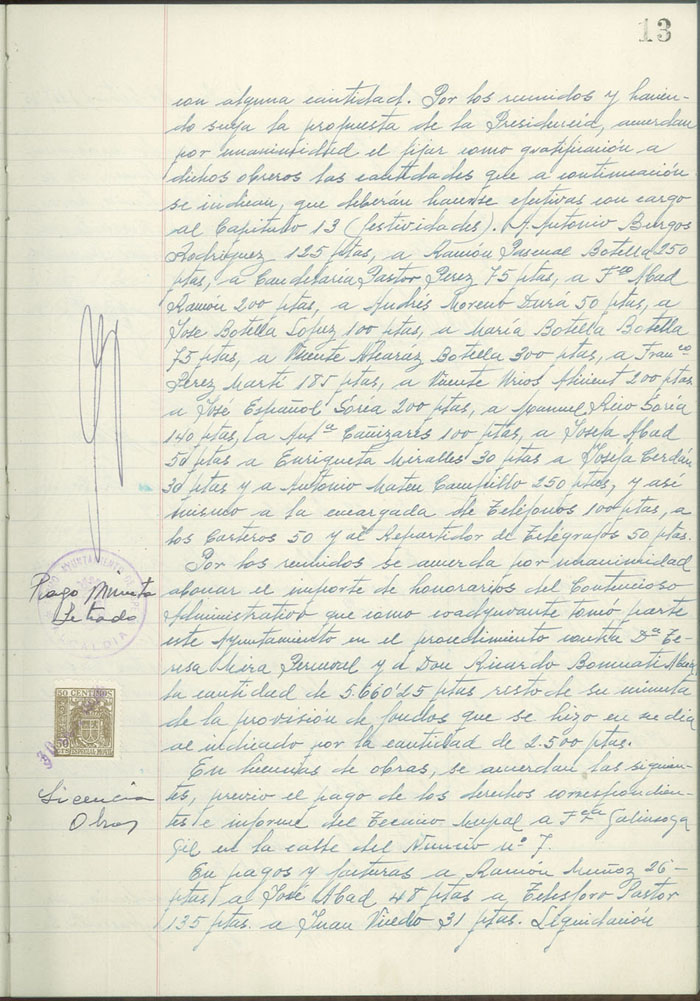 13
con alguna cantidad. Por los reunidos y hacien-
do suya la propuesta de la Presidencia, acuerdan
por unanimidad el fijar como gratificación a
dichos obreros las cantidades que a continuación
se indican, que deberán hacerse efectivas con cargo
al Capitulo 13 (festividades). A Antonio Burgos
Rodriguez 125 ptas, a Ramón Pascual Botella 250
ptas, a Candelaria Pastor Perez 75 ptas, a Fco Abad
Ramón 200 ptas, a Andrés Moreno Durá 50 ptas, a
Jose Botella Lopez 100 ptas, a María Botella Botella
75 ptas, a Vicente Alcaraz Botella 300 ptas, a Franco
Pérez Martí 185 ptas, a Vicente Urios 200 ptas
a José Español Soria 200 ptas, a Manuel Rico Soria
140 ptas, a Antª Cañizares 100 ptas, a Josefa Abad
50 ptas a Enriqueta Miralles 30 ptas a Josefa Cerdán
30 ptas y a Antonio Mateu Campillo 250 ptas, y asi
mismo a la encargada de Teléfonos 100 ptas, a
los Carteros 50 y al Repartidor de Telégrafos 50 ptas.
Por los reunidos se acuerda por unanimidad
abonar el importe de honorarios del Contencioso
Administrativo que como coadyuvante tomó parte
este Ayuntamiento en el procedimiento contra Dª Te-
resa Mira y a Don Ricardo
la cantidad de 5.660'25 ptas resto de su minuta
de la provisión de fondos que se hizo en su dia
al indicado por la cantidad de 2.500 ptas.
En licencias de obras, se acuerdan las siguien-
tes, previo el pago de los derechos correspondien-
tes e informe del Tecnico Mcpal a Frca Galinsoga
Gil en la calle del Nuncio nº 7.
En pagos y facturas a Ramón Muñoz 26-
ptas a José Abad 48 ptas a Telesforo Pastor
135 ptas. a Juan Vicedo 31 ptas. Liquidación
Pago Minuta
Letrado
AYUNTAMIENTO
ALCALDIA
50 CENTIMOS
ESPECIAL MOVIL
Licencia
Obras